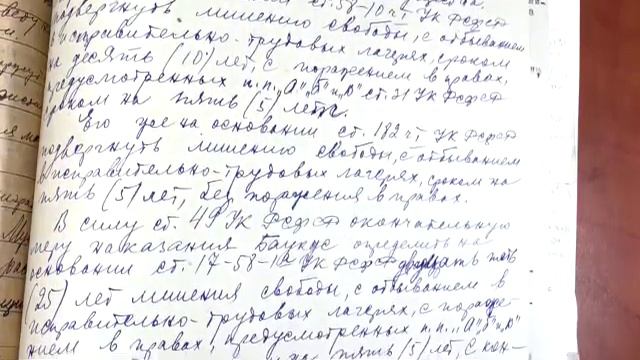 ст. 58-10 ч.I УК РСФСР
подвергнуть лишению свободы, с отбыванием
в исправительно-трудовых лагерях, сроком
на десять (10) лет, с поражением в правах,
предусмотренных п.п. "А" "Б" и "В" ст. 31 УК РСФСР
сроком на пять (5) лет.
Его же на основании ст. 182 ч.I УК РСФСР
подвергнуть лишению свободы, с отбыванием
в исправительно-трудовых лагерях, сроком на
пять (5) лет, без поражения в правах.
В силу ст. 49 УК РСФСР окончательную
меру наказания Баукус определить на
основании ст. 17-58-1а УК РСФСР двадцать пять
(25) лет лишения свободы, с отбыванием в
исправительно-трудовых лагерях, с пораже-
нием в правах, предусмотренных п.п. "А" "Б" и "В"
на пять (5) лет, с кон-